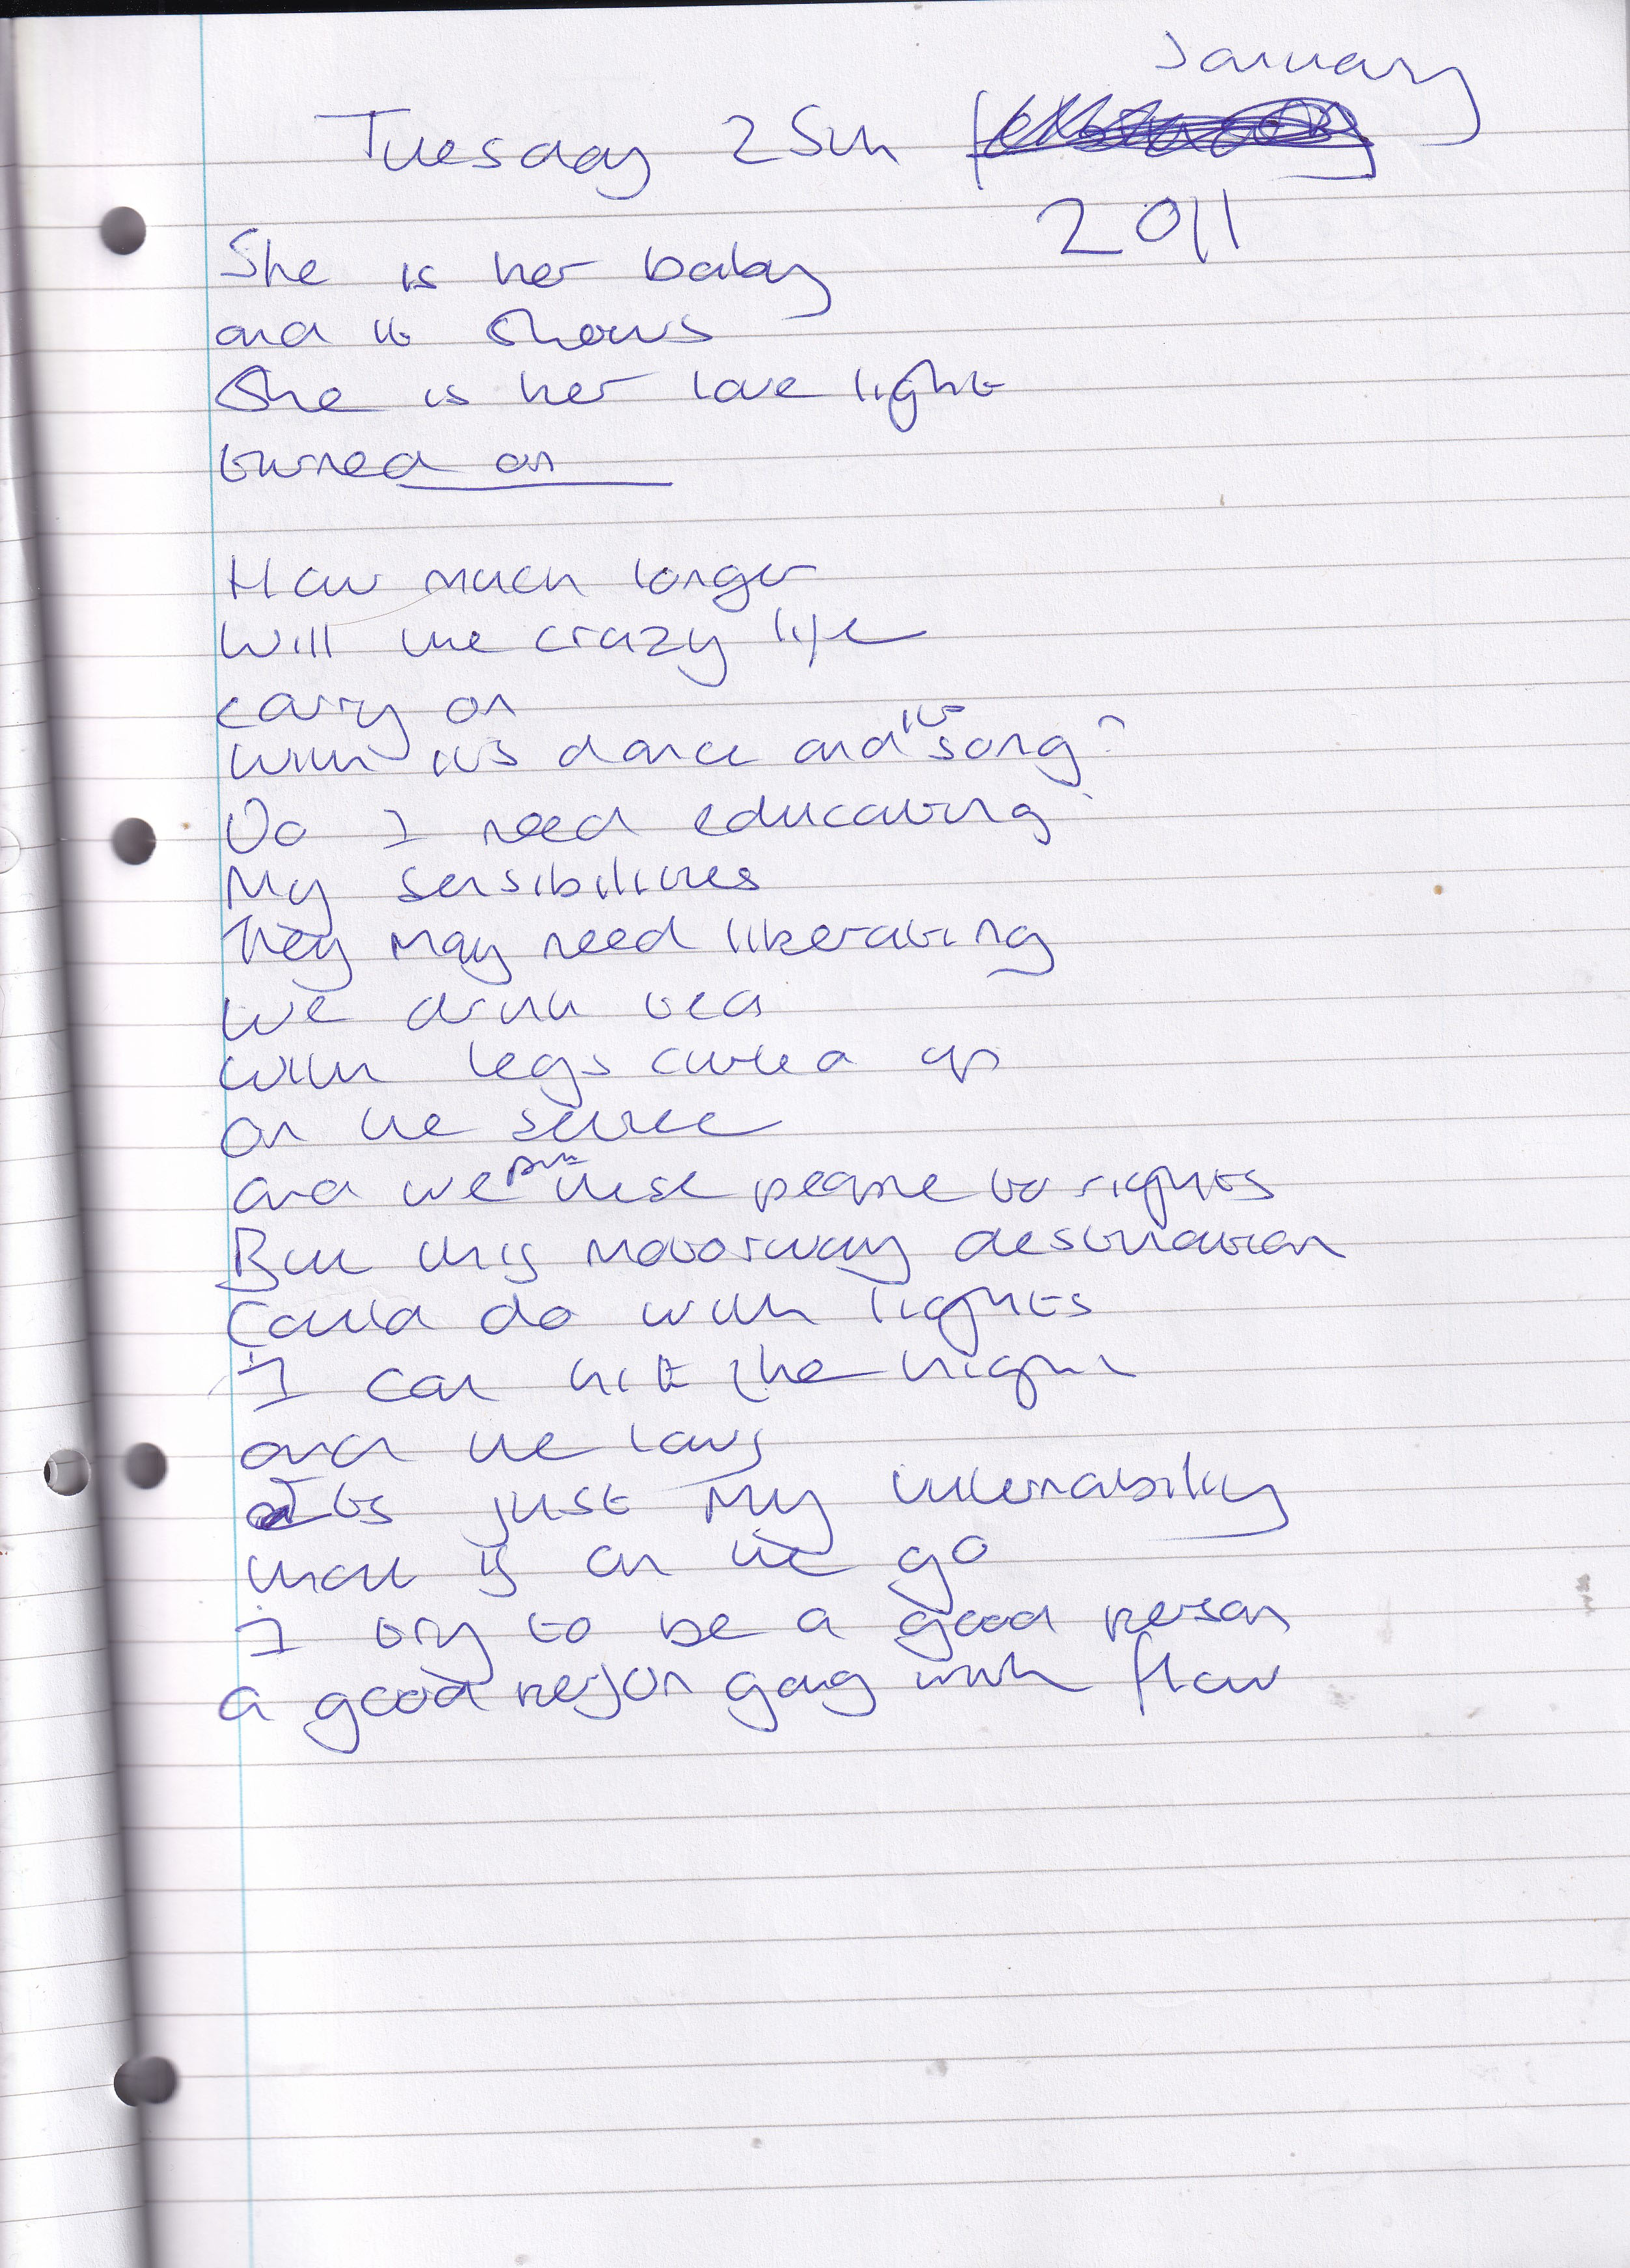 January
Tuesday 25th
2011
She is her baby
and it shows
She is her love light
turned on
How much longer
Will the crazy life
carry on
With its dance and its song?
Do I need educating?
My sensibilities
They may need liberating
We drink tea
With legs curled up
On the settee
and we put these people to rights
But this motorway destination
Could do with lights
I can hit the high
and the lows
Its just my vulnerability
that is on the go
I try to be a good person
a good person going with flow